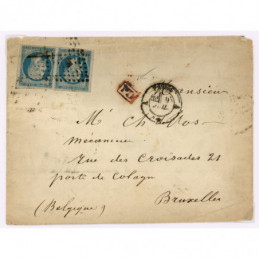 Monsieur
M. Ch Vos
mécanicien
rue des Croisades 21
porte de Cologne
Bruxelles
(Belgique)